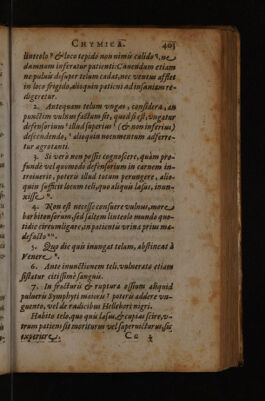 CHYMICA. 403
linteolo & loco tepido non nimis calido, ne
damnum inferatur patienti: Cauendum etiam
ne puluis desuper telum cadat, nec ventus afflet
in loco frigido, alioquin patiens ad insaniam re-
digeretur.
2. Antequam telum vngas, considera, an
punctim vulnus factum sit, quod si est, vngatur
defensorium illud superius (& non inferius)
descendendo, alioquin nocumentum afferre-
tur ægrotanti.
3. Si vero non possis cognoscere, quàm pro-
funde vel quomodo defensorium in carnem in-
troiuerit, poteris illud totum perungere, alio-
quin sufficit locum teli, quo aliquis læsus, inun-
xisse.
4. Non est necesse consuere vulnus, more
barbitonsorum, sed saltem linteolo mundo quo-
tidie circumligare, in patientis vrina prius ma-
defacto.
5. Quo die quis inungat telum, abstineat à
Venere.
6. Ante inunctionem teli, vulnerato etiam
sistatur citissimè sanguis.
7. In fracturis & ruptura ossium aliquid
pulueris Symphyti maioris poteris addere vn-
guento, vel de radicibus Hellebori nigri.
Habito telo, quo quis læsus, & cupias scire, v-
trum patiens sit moriturus vel superuicturus, sic
experiere.
Cc